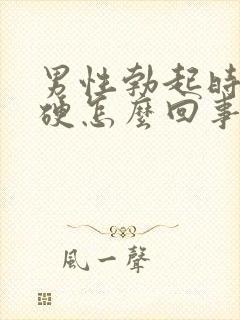 男性勃起時
硬怎麼回事
風一聲